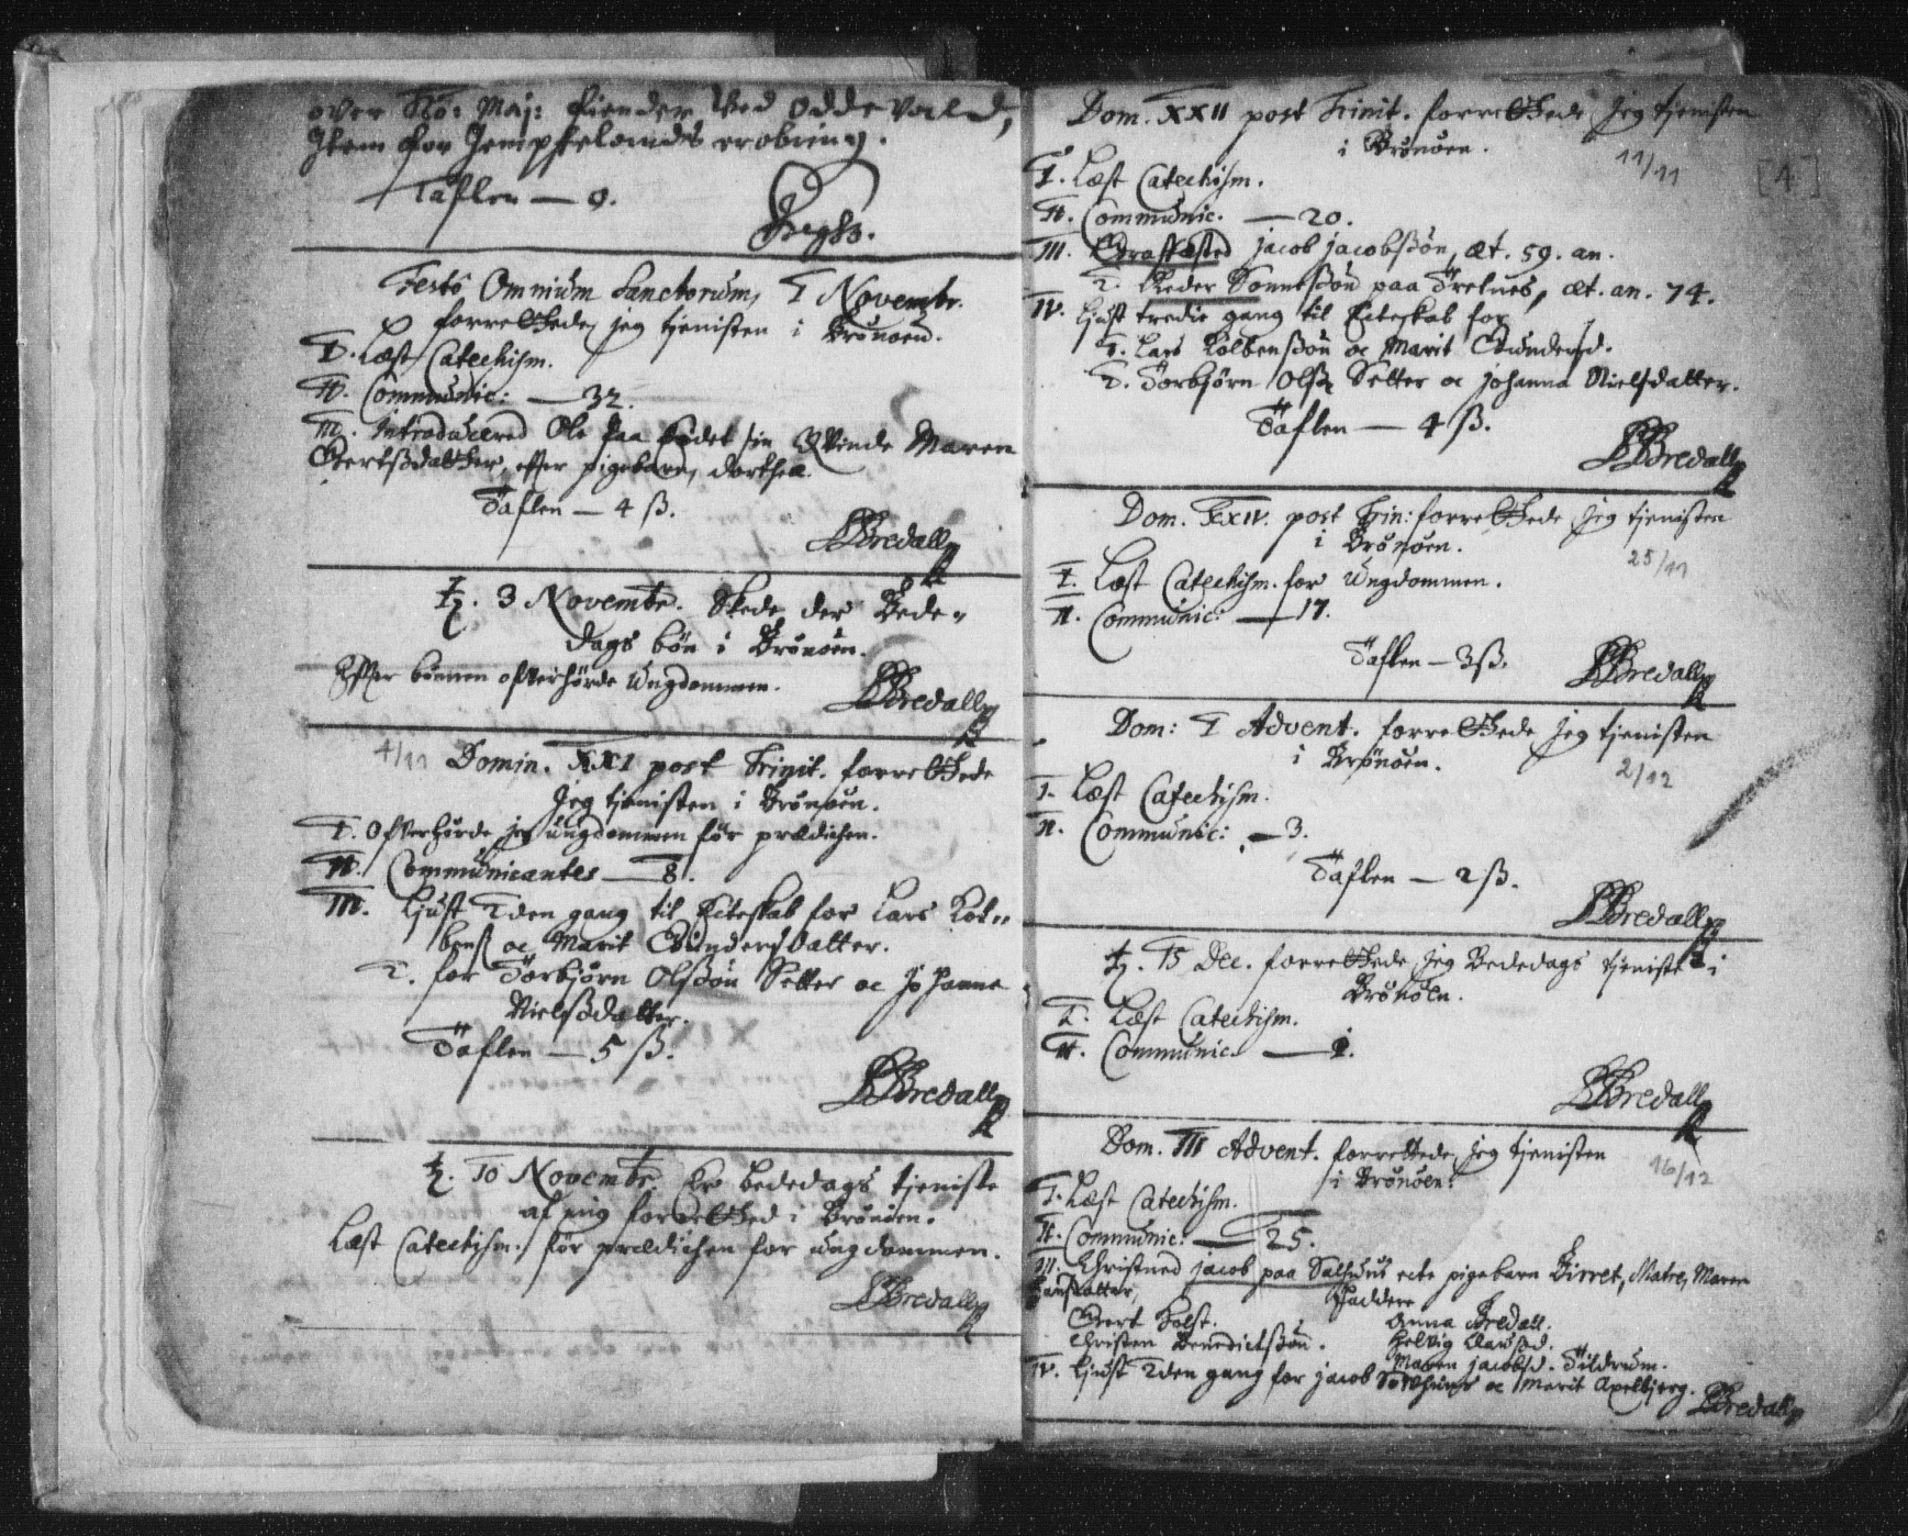 over Kö: Maj: fiender Ved Oddevald,
Item for Jempftelands erobring.
Taflen — 0.
Festo Omnium Sanctorum, 1 Novembr.
forrettede jeg tjenisten i Brönöen.
I. Læst Catechism.
II. Communic: — 32.
III. Introducered Ole paa sin Qvinde Maren
Gertsdatter, effter pigebarn, dorthea.
Taflen — 4 ß.
Bredall
♄. 3 Novembr. Skede der Bede-
dags bön i Brönöen.
Effter bönnen offverhörde Ungdommen.
Bredall
4/11
Domin. XXI post Trinit. forrettede
Jeg tjenisten i Brönöen.
I. Offverhörde jeg ungdommen för prædichen.
II. Communicantes — 8.
III. Ljust 2den gang til Ecteskab for Lars Kol-
bens oc Marit Gundersdatter.
2. for Torbjörn Olssön Setter oc Johanna
Nielsdatter.
Taflen — 5 ß.
Bredall
♄. 10 Novembr. Er bededags tjeniste
af mig forrettted i Brönöen.
Læst Catechism. för prædichen for ungdommen.
Bredall
Dom. XXII post Trinit. forrettede Jeg tjenisten
i Brönöen.
11/11
[4]
I. Læst Catechism.
II. Communic. — 20.
III. Graffæsted Jacob Jacobssön, æt. 59. an.
2. Peder paa æt. an. 74.
IV. Ljust tredie gang til Ecteskab for
1. Lars Kolbenssön oc Marit Gundersd.
2. Torbjörn Olss. Setter oc Johanna Nielsdatter.
Taflen — 4 ß.
Bredall
Dom. XXIV. post Trin: forrettede Jeg tjenisten
i Brönöen.
25/11
I. Læst Catechism. for Ungdommen.
II. Communic: — 17.
Taflen — 3 ß.
Bredall
Dom: 1 Advent. forrettede Jeg tjenisten
i Brönöen.
2/12
I. Læst Catechism.
II. Communic: — 3.
Taflen — 2 ß.
Bredall
♄. 15 Dec. forrettede Jeg Bededags tjeniste i
Brönöen.
I. Læst Catechism.
II. Communic. — 1.
Bredall
Dom. III Advent. forrettede Jeg tjenisten
i Brönöen.
16/12
I. Læst Catechism.
II. Communic: — 25.
III. Christned Jacob paa Salhuus ecte pigebarn Birret, Matre, Maren
Hansdatter,
Faddere
Gert Holst. Anna Bredall.
Christen Benedictssön. Helvig Clausd.
Maren Jacobsd. Tildrum.
IV. Ljust 2den gang for Jacob oc Marit Apelbjerg.
Bredall